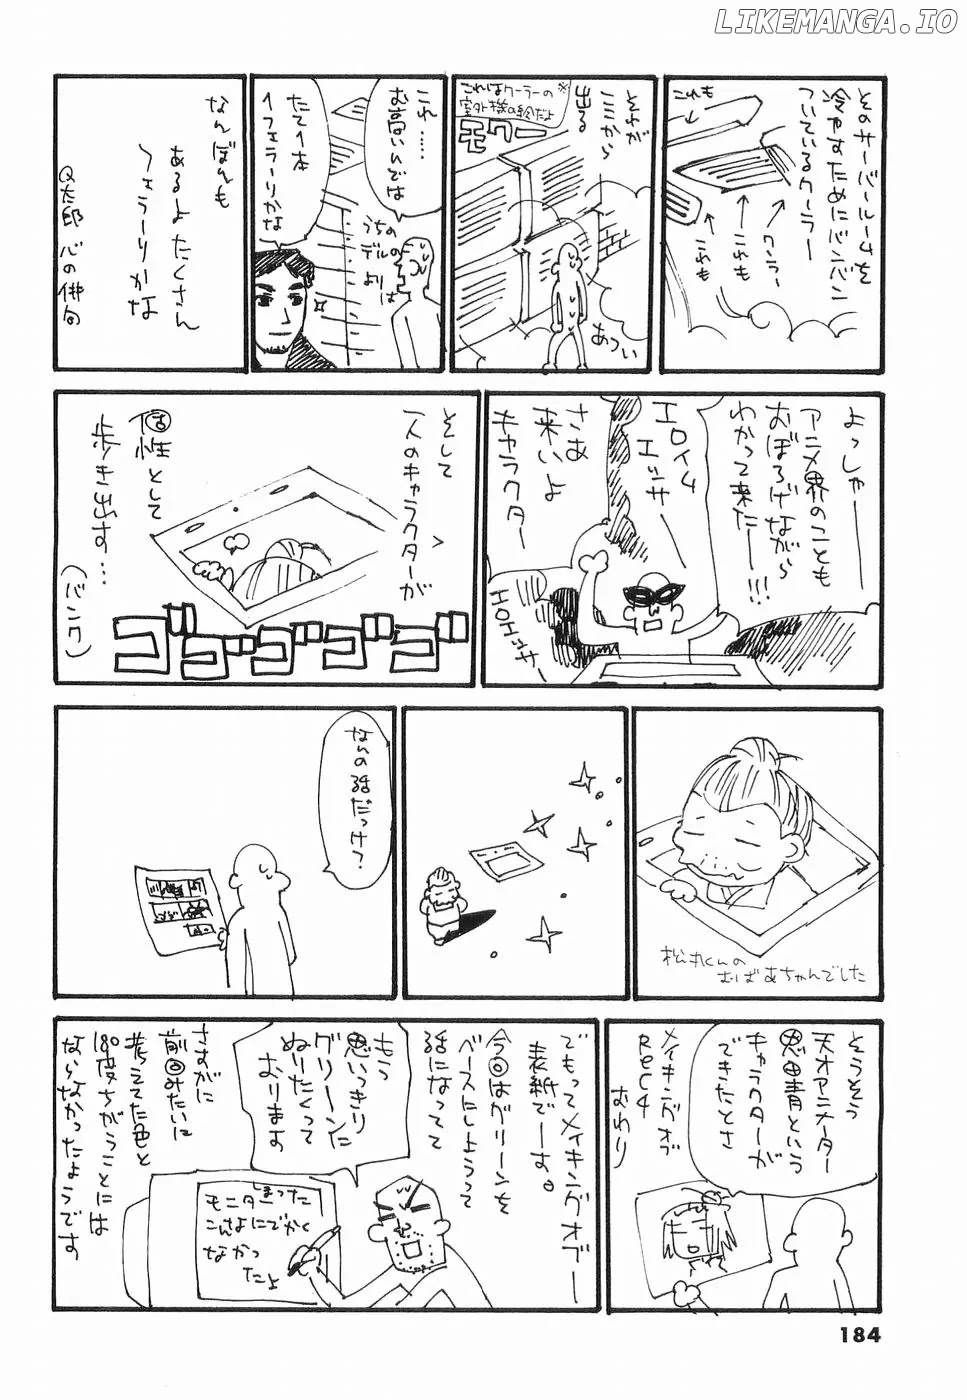 LIKEMANGA.IO
そのサーバールームを
冷やすためにバンバン
ついているクーラー
これも
クーラー
これも
これも
それが
ここから
出る
※これはクーラーの
室外機の絵だよ
モワー
あつい
これ……
お高いんでは
うちの
デルの
よりは
たて1本
1フェラーリかな
なんぼんも
あるよたくさん
フェラーリかな
Q太郎 心の俳句
よっしゃーー
アニメ界のことも
おぼろげながら
わかって来たー!!!
エロイム
エッサー
さあ
来いよ
キャラクター
HOHッサー
そして
一人のキャラクターが
個性として
歩き出す…
(バンク)
ゴゴゴゴゴ
松丸くんの
おばあちゃんでした
なんの話だっけ?
そうそう
天才アニメーター
恩田青という
キャラクターが
できたとさ
メイキングオブ
REC4
おわり
でもってメイキングオブー
表紙でーす。
今回はグリーンを
ベースにしようって
話になってて
もう
思いっきり
グリーンに
ぬりたくって
おります
さすがに
前回みたいに
考えてた色と
180度ちがうことには
ならなかったようです
しまった
モニター
こんなにでかく
なかっ
たよ
184